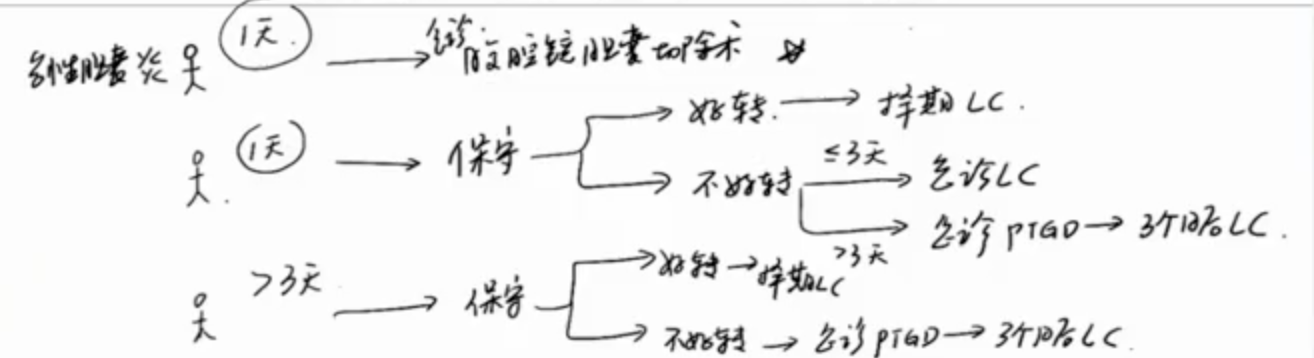 急性胆囊炎 1天. → 急诊. 腹腔镜胆囊切除术
1天 → 保守 → 好转. → 择期LC.
→ 不好转 ≤3天 → 急诊LC
>3天 → 急诊PTGD → 3个月后LC.
>3天 → 保守 → 好转 → 择期LC
→ 不好转 → 急诊PTGD → 3个月后LC.